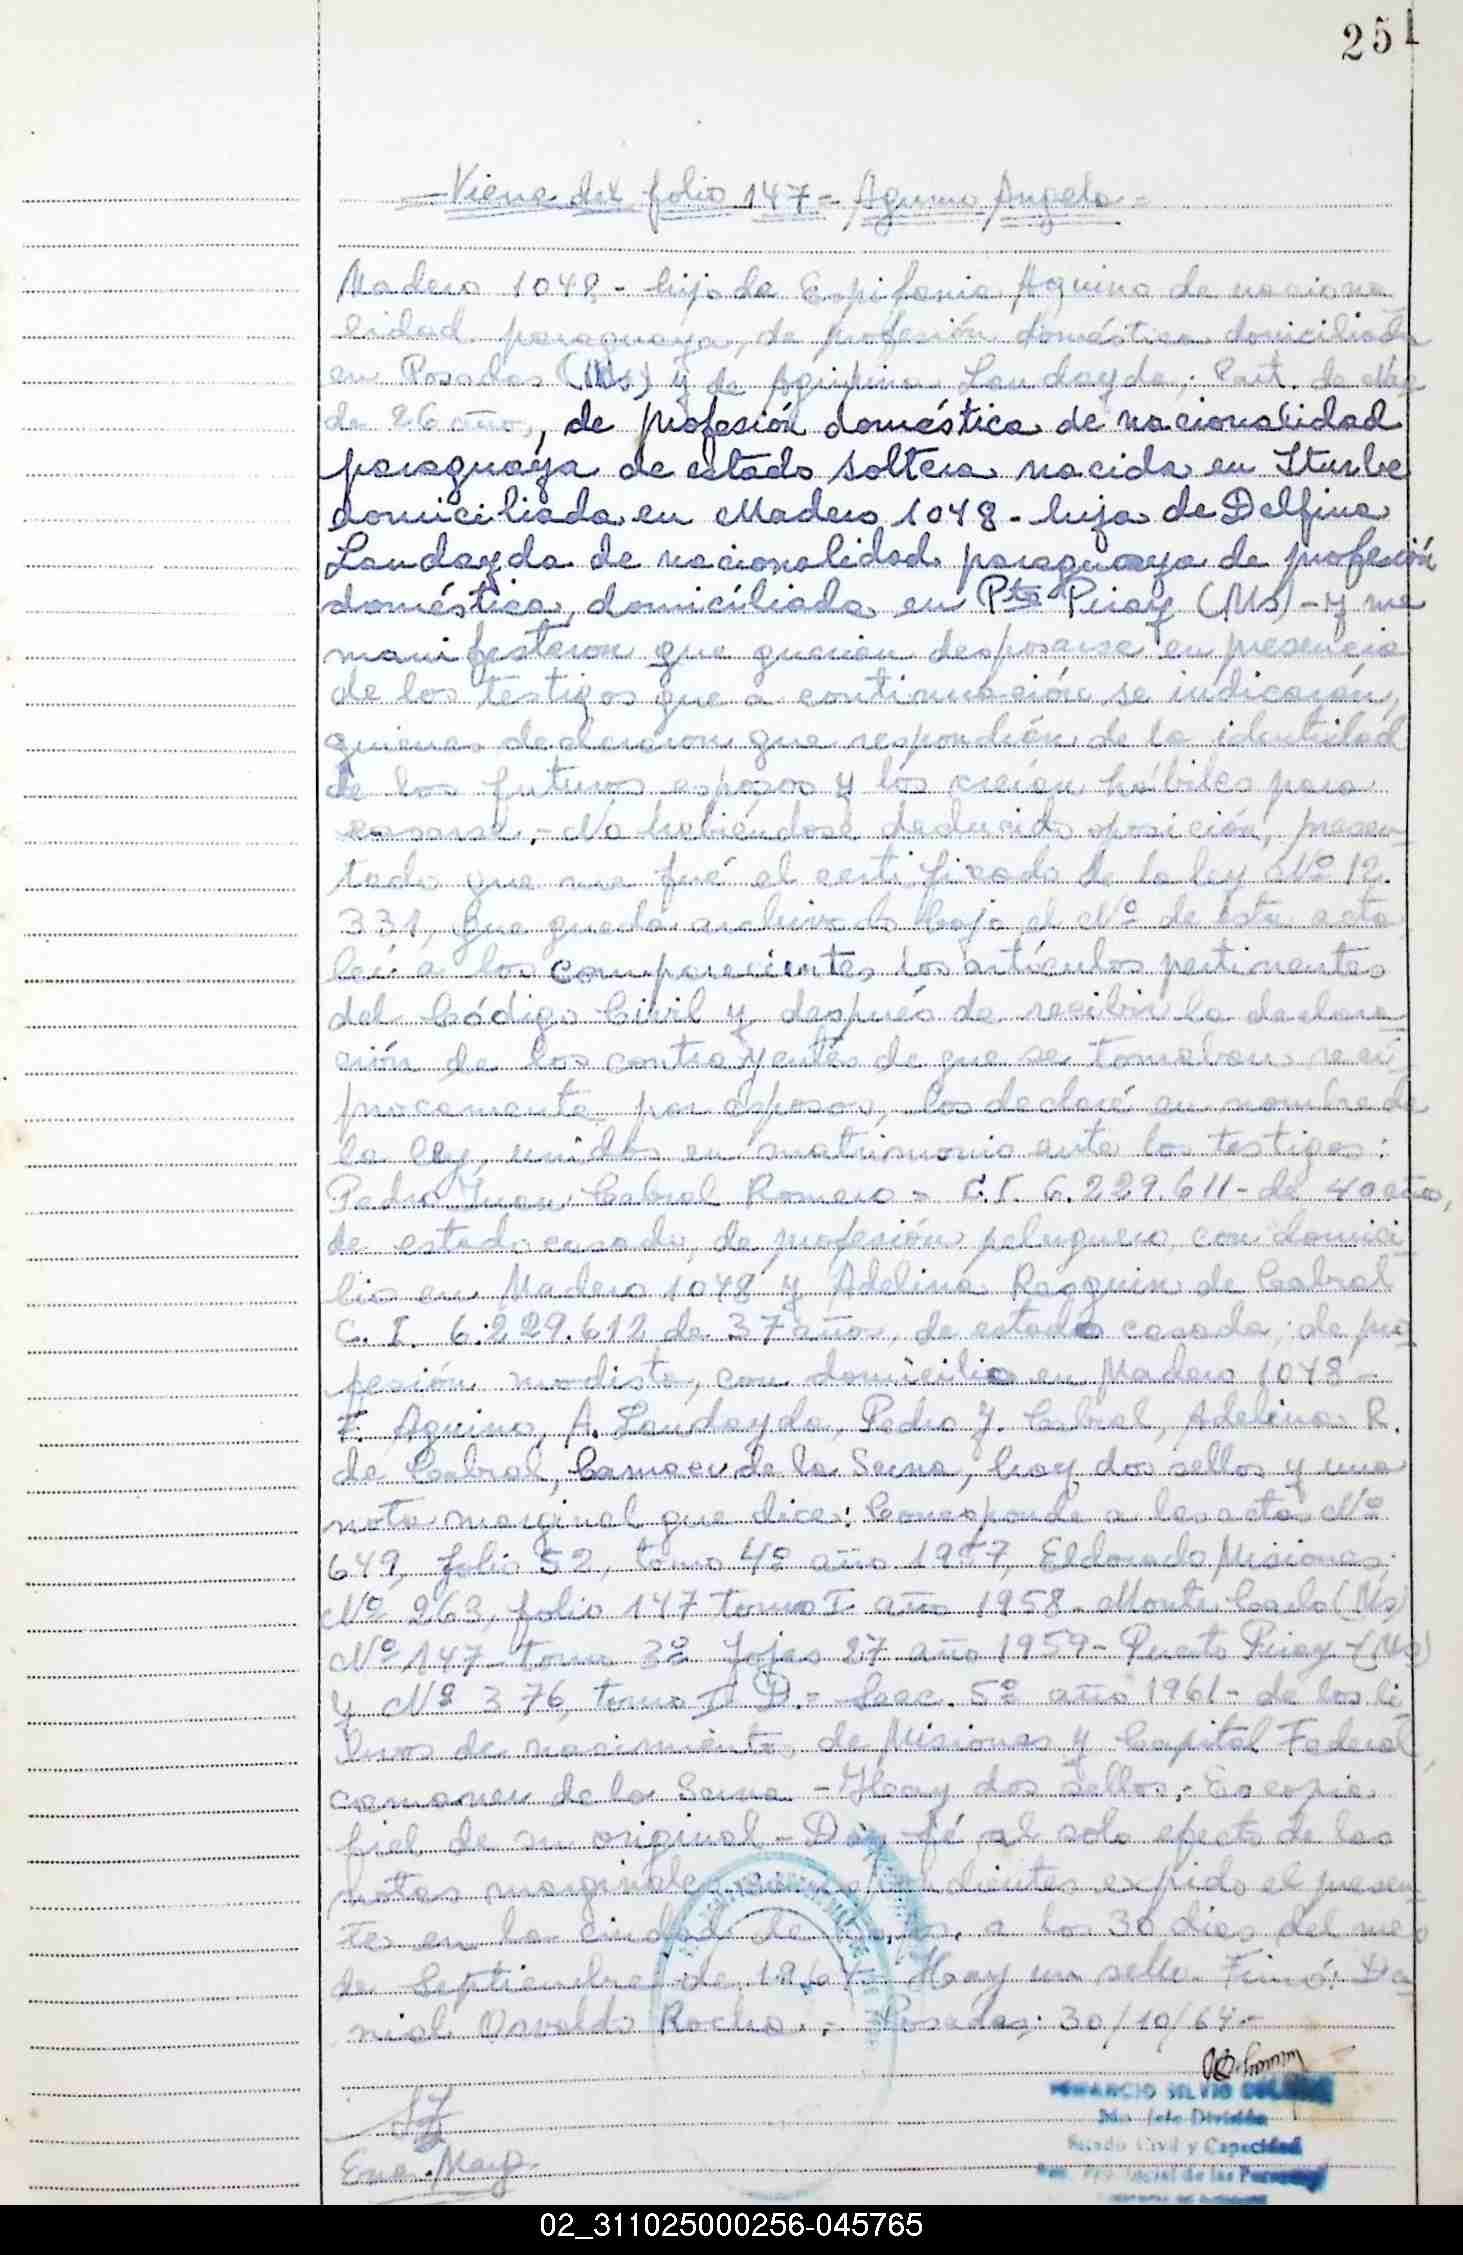 251
Viene del folio 147 = Aquino Angela =
Madero 1048 - hijo de Epifania Aquino de naciona
lidad paraguaya, de profesión doméstica domiciliada
en Posadas (Ms) y de Agripina Landayda,
de 26 años, de profesión doméstica de nacionalidad
paraguaya de estado soltera nacida en Iturbe
domiciliada en Madero 1048 - hija de Delfina
Landayda de nacionalidad paraguaya de profesión
doméstica, domiciliada en Pto Piray (Ms) - y me
manifestaron que querían desposarse en presencia
de los testigos que a continuación se indicarán,
quienes declararon que respondían de la identidad
de los futuros esposos y los creían hábiles para
casarse, - No habiéndose deducido oposición, presen-
tado que me fué el certificado de la ley Nº 12.
331, que queda archivado bajo el Nº de esta acta
leí a los comparecientes los artículos pertinentes
del Código Civil y después de recibir la declara-
ción de los contrayentes de que se tomaban recí
procamente por esposos, los declaré en nombre de
la ley, unidos en matrimonio ante los testigos:
Pedro Juan Cabral Romero = C.I. 6.229.611 - de 40 años,
de estado casado, de profesión peluquero, con domici
lio en Madero 1048 y Adelina Rasquin de Cabral
C. I. 6.229.612 de 37 años, de estado casada, de pro
fesión modista, con domicilio en Madero 1048 -
F. Aquino, A. Landayda, Pedro J. Cabral, Adelina R.
de Cabral, de la Serna, hay dos sellos y una
nota marginal que dice: Corresponde a las actas Nº
649, folio 52, tomo 4º año 1957, Eldorado Misiones;
Nº 263, folio 147 tomo I año 1958 - Monte Carlo (Ms)
Nº 147 - tomo 3º fojas 27 año 1959 - Puerto Piray - (Ms)
y Nº 376, tomo I D. = Secc. 5º año 1961 - de los li
bros de nacimientos de Misiones y Capital Federal,
de la Serna - Hay dos sellos, - Es copia
fiel de su original - Doy fé, al solo efecto de las
notas marginales correspondientes expido el presen-
te en la ciudad de a los 30 días del mes
de Septiembre de 1964. Hay un sello. Firmó: Da
niel Osvaldo Rocha. - Posadas, 30/10/64 -
Silvio
Jefe División
Estado Civil y Capacidad